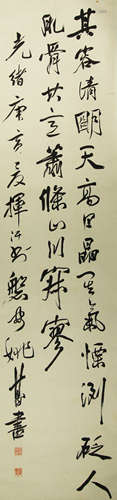 其容清明天高日晶其氣慄冽砭人
肌骨其意蕭條山川寂寥
光緒庚夏揮汗姚書